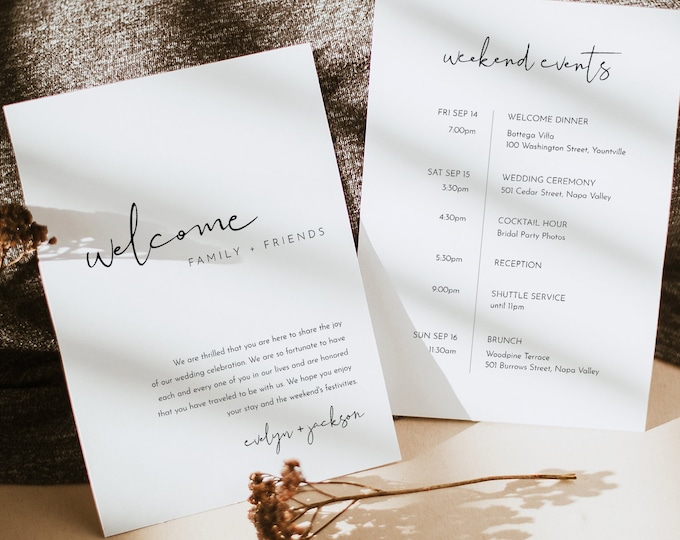 welcome
FAMILY + FRIENDS
We are thrilled that you are here to share the joy
of our wedding celebration. We are so fortunate to have
each and every one of you in our lives and are honored
that you have traveled to be with us. We hope you enjoy
your stay and the weekend's festivities.
evelyn + jackson
weekend events
FRI SEP 14
7:00pm
WELCOME DINNER
Bottega Villa
100 Washington Street, Yountville
SAT SEP 15
3:30pm
WEDDING CEREMONY
501 Cedar Street, Napa Valley
4:30pm
COCKTAIL HOUR
Bridal Party Photos
5:30pm
RECEPTION
9:00pm
SHUTTLE SERVICE
until 11pm
SUN SEP 16
11:30am
BRUNCH
Woodpine Terrace
501 Burrows Street, Napa Valley